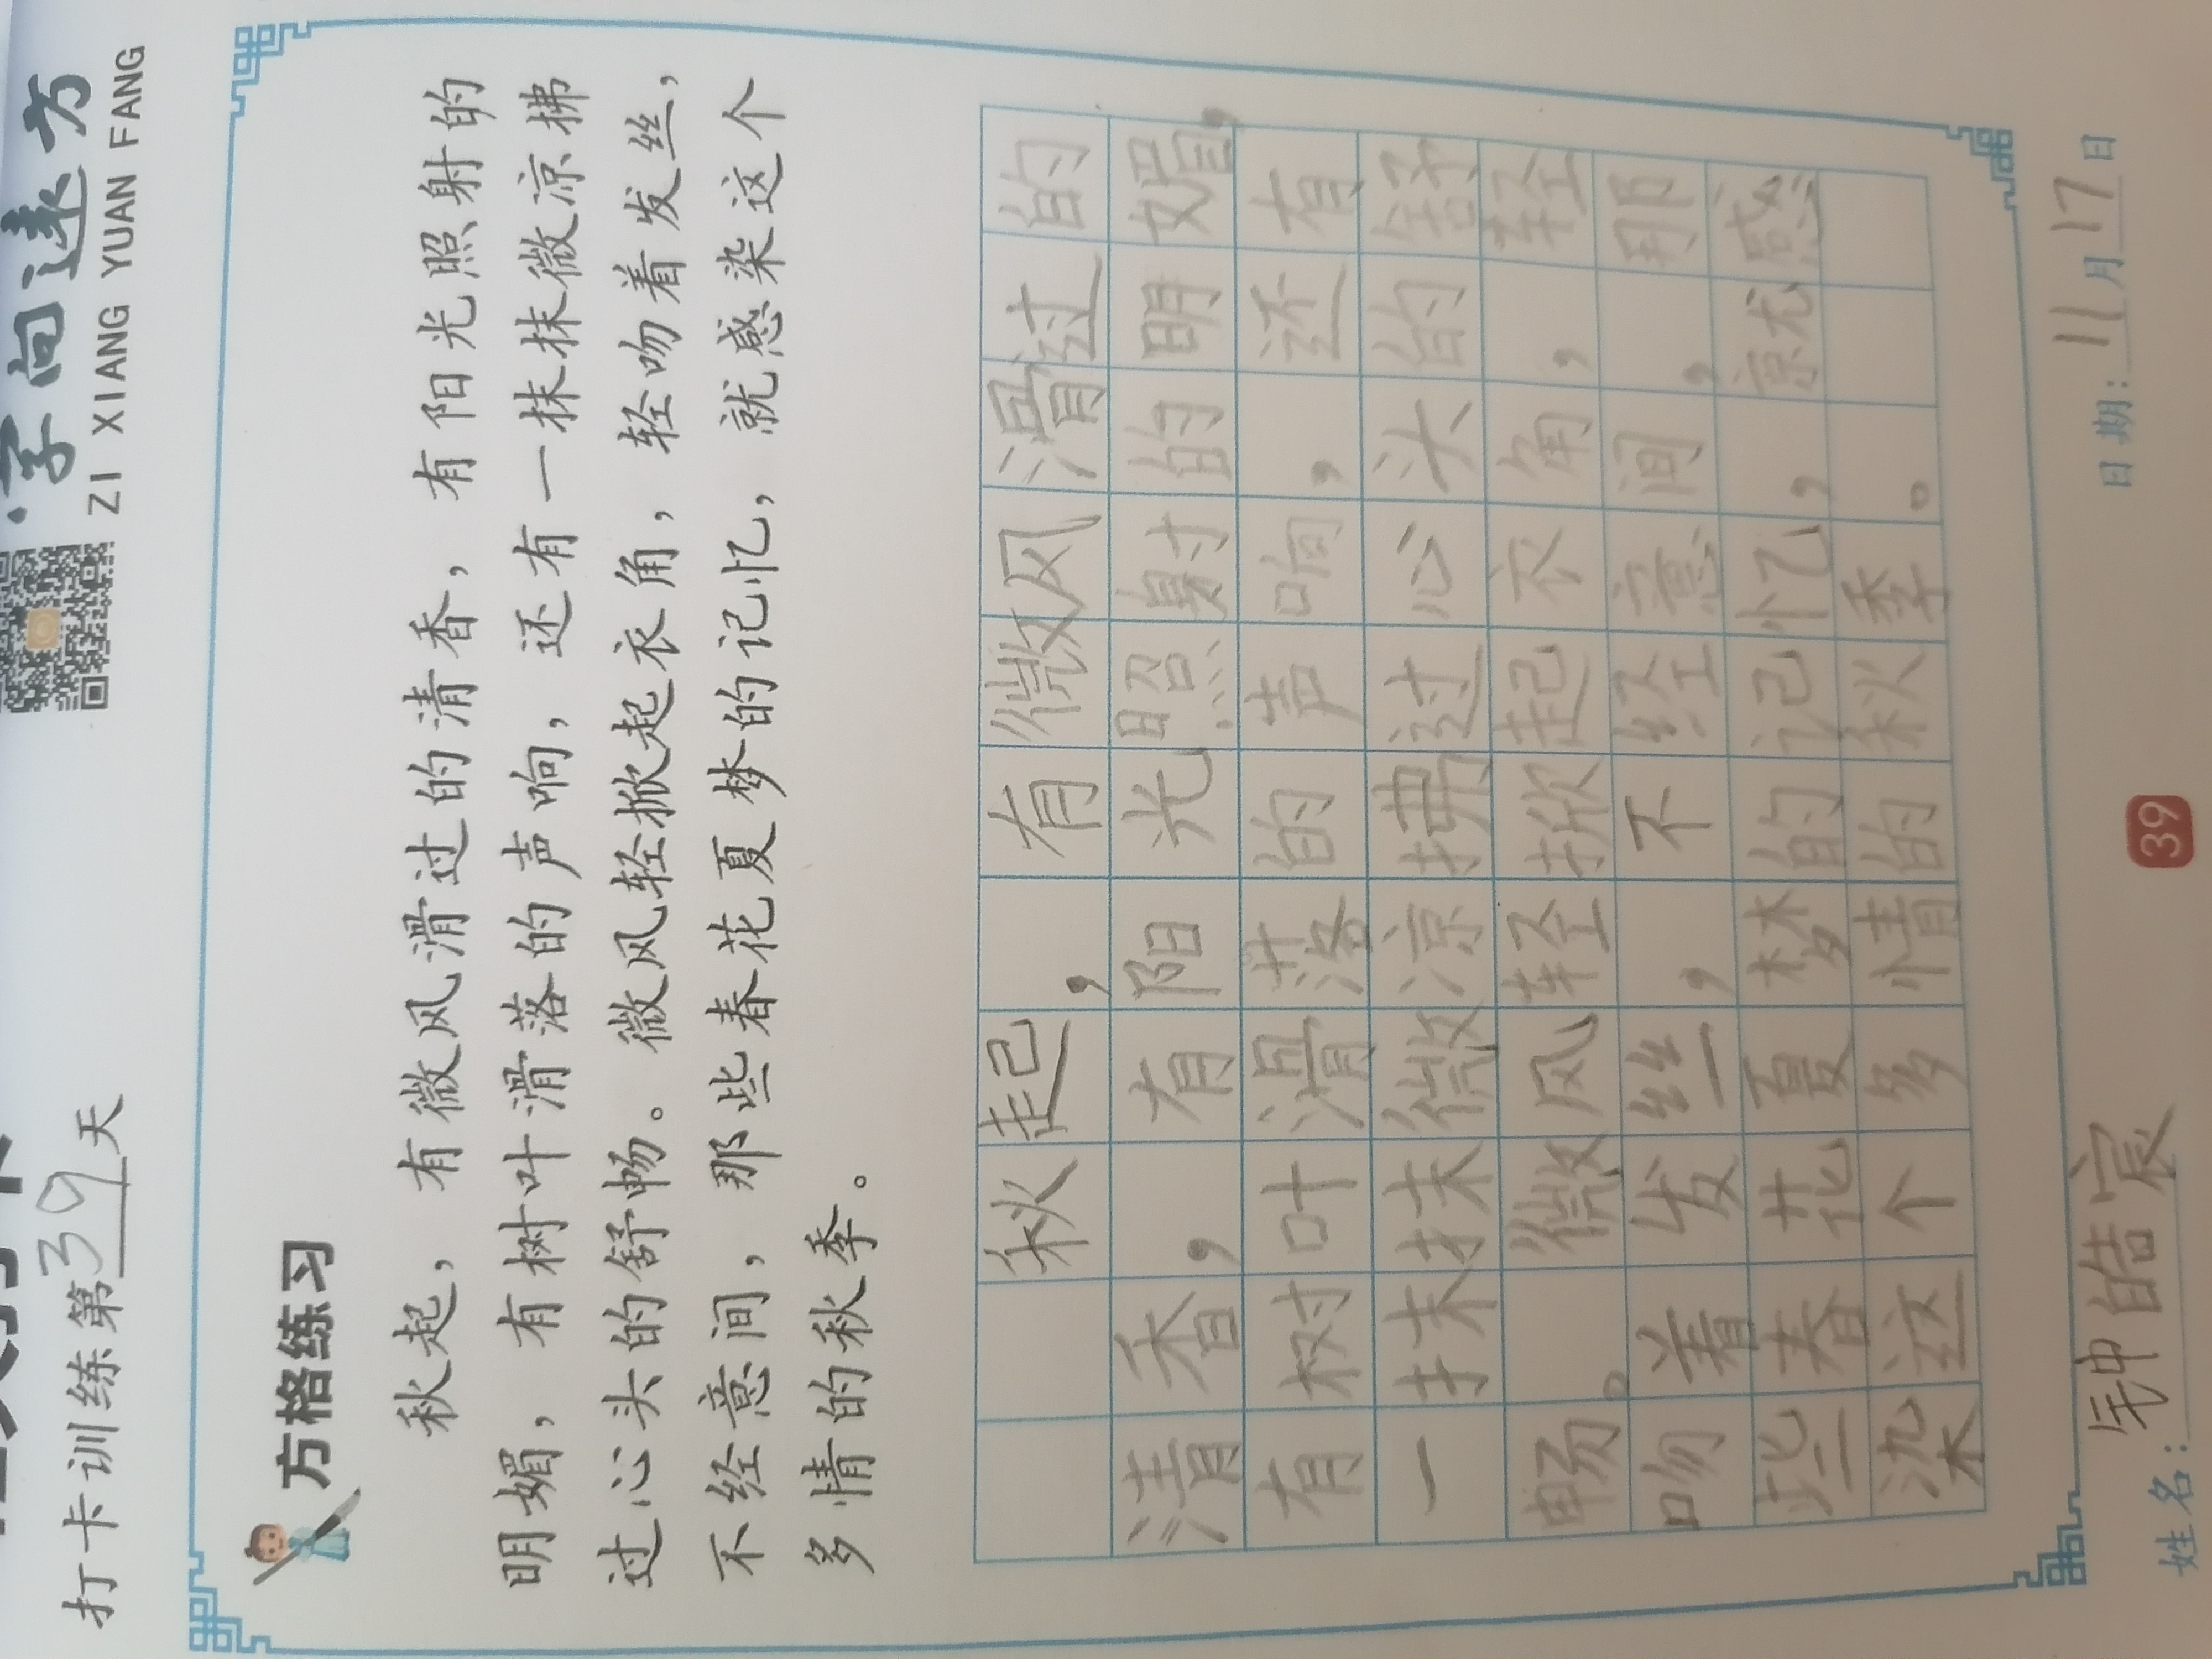 字向远方
ZI XIANG YUAN FANG
打卡训练第39天
方格练习
秋起，有微风滑过的清香，有阳光照射的
明媚，有树叶滑落的声响，还有一抹抹微凉拂
过心头的舒畅。微风轻掀起衣角，轻吻着发丝，
不经意间，那些春花夏梦的记忆，就感染这个
多情的秋季。
秋起，有微风滑过的
清香，有阳光照射的明媚，
有树叶滑落的声响，还有
一抹抹微凉拂过心头的舒
畅。微风轻掀起衣角，轻
吻着发丝，不经意间，那
些春花夏梦的记忆，就感
染这个多情的秋季。
姓名：钟皓宸
39
日期：11月17日